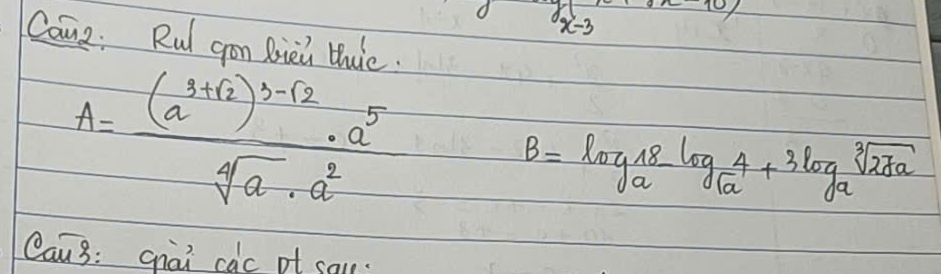 Câu2: Rút gọn biểu thức.
A = (a^{3+√2})^{3-√2} . a^5 / ∜a . a^2
B = log_a 18 - log_{√a} 4 + 3log_a ∛27a
Câu3: giải các pt sau: